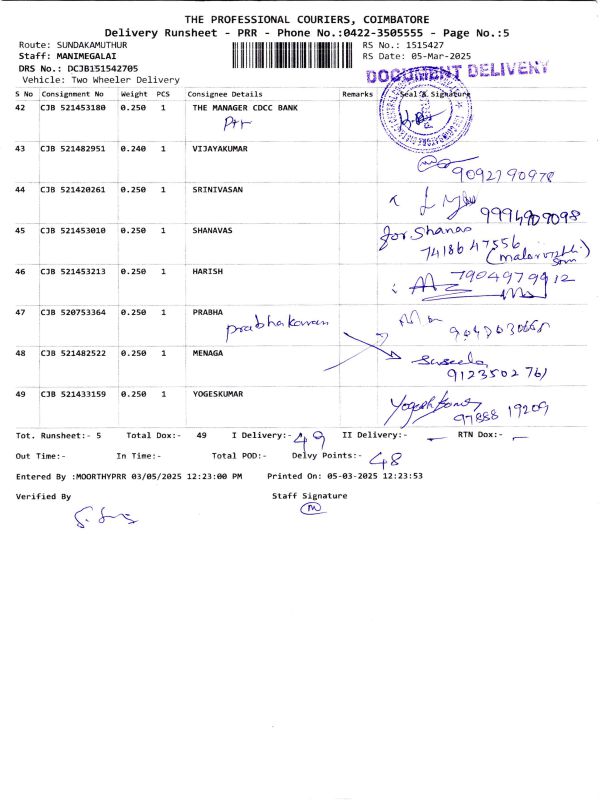 THE PROFESSIONAL COURIERS, COIMBATORE
Delivery Runsheet - PRR - Phone No.:0422-3505555 - Page No.:5
Route: SUNDAKAMUTHUR RS No.: 1515427
Staff: MANIMEGALAI RS Date: 05-Mar-2025
DRS No.: DCJB151542705
DOCUMENT DELIVERY
Vehicle: Two Wheeler Delivery
S No Consignment No Weight PCS Consignee Details Remarks Seal & Signature
42 CJB 521453180 0.250 1 THE MANAGER CDCC BANK
43 CJB 521482951 0.240 1 VIJAYAKUMAR
9092790978
44 CJB 521420261 0.250 1 SRINIVASAN
9994909098
45 CJB 521453010 0.250 1 SHANAVAS for Shanas
7418647556
46 CJB 521453213 0.250 1 HARISH 7904979912
47 CJB 520753364 0.250 1 PRABHA
prabhakaran
48 CJB 521482522 0.250 1 MENAGA Suseela
9123502761
49 CJB 521433159 0.250 1 YOGESKUMAR
97888 19209
Tot. Runsheet:- 5 Total Dox:- 49 I Delivery:- 49 II Delivery:- — RTN Dox:- —
Out Time:- In Time:- Total POD:- Delvy Points:- 48
Entered By :MOORTHYPRR 03/05/2025 12:23:00 PM Printed On: 05-03-2025 12:23:53
Verified By Staff Signature